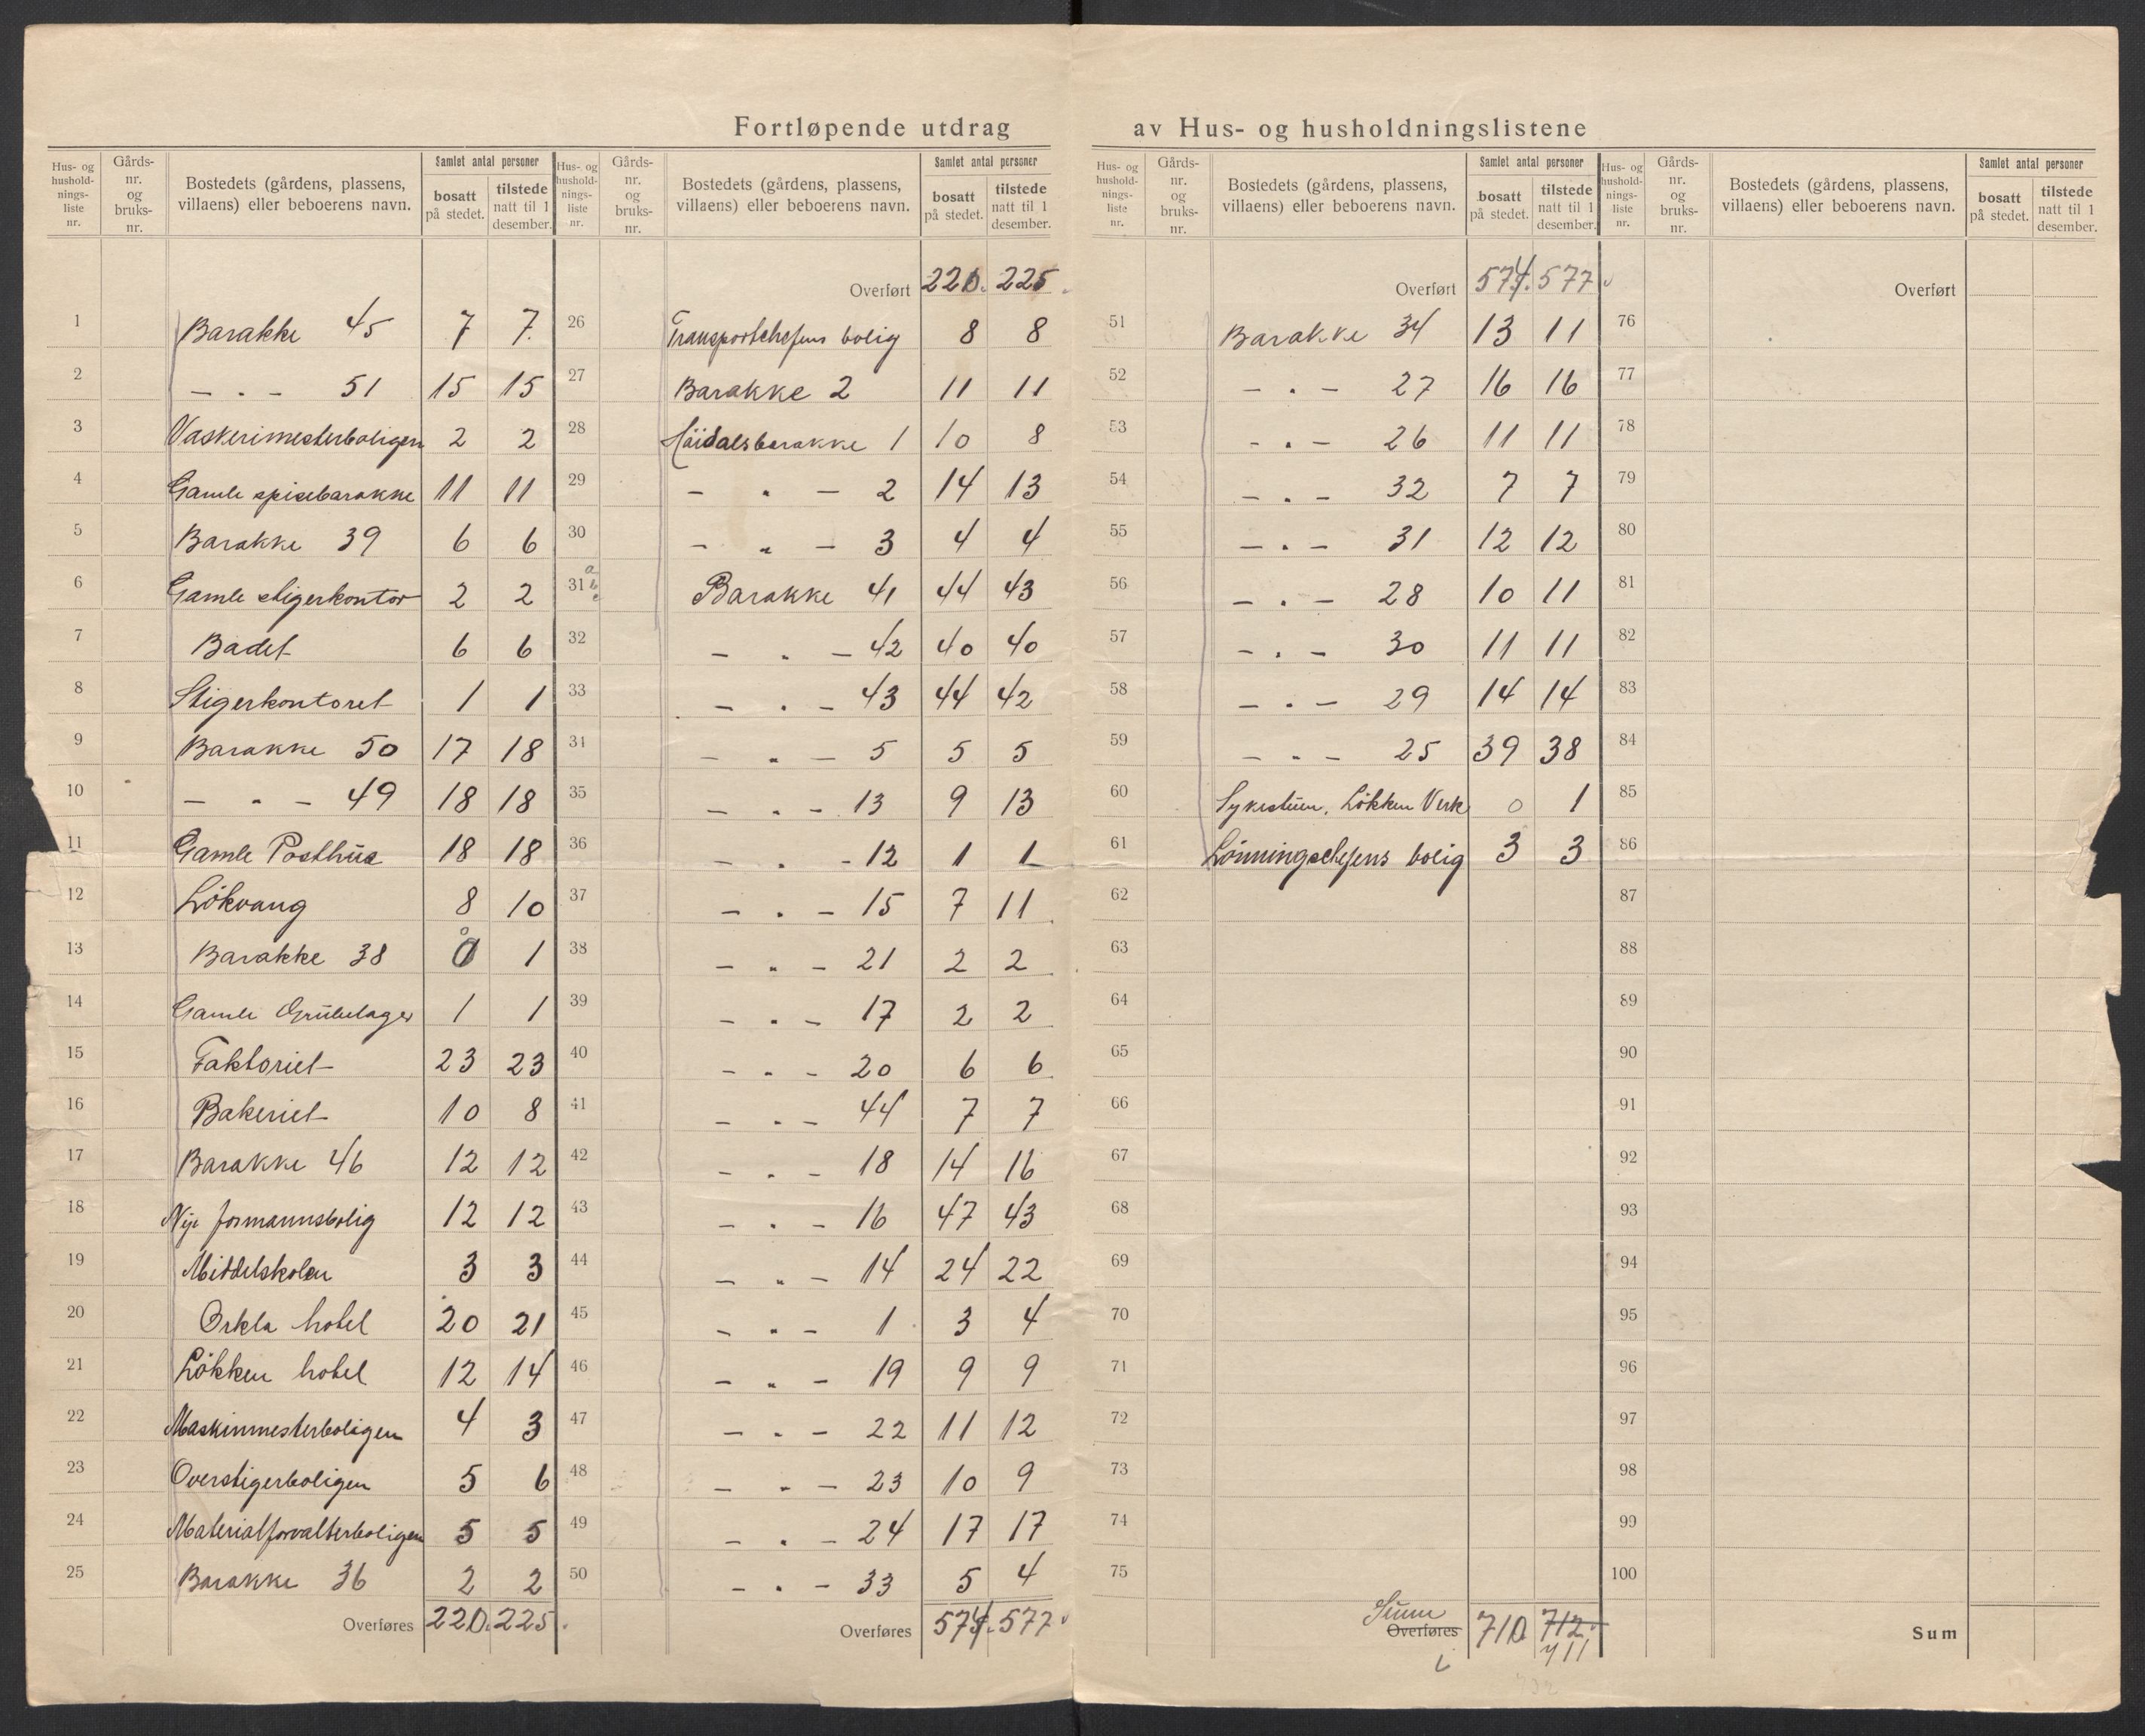 Fortløpende utdrag av Hus- og husholdningslistene
Hus- og hushold-nings-liste nr. | Gårds-nr. og bruks-nr. | Bostedets (gårdens, plassens, villaens) eller beboerens navn. | Samlet antal personer | bosatt på stedet. | tilstede natt til 1 desember.
1 Barakke 45 7 7
2 — " — 51 15 15
3 Vaskerimesterboligen 2 2
4 Gamle spisebarakke 11 11
5 Barakke 39 6 6
6 Gamle stigerkontor 2 2
7 Badet 6 6
8 Stigerkontoret 1 1
9 Barakke 50 17 18
10 — " — 49 18 18
11 Gamle Posthus 18 18
12 Lökvang 8 10
13 Barakke 38 0 1
14 Gamle Grubelager 1 1
15 Faktoriet 23 23
16 Bakeriet 10 8
17 Barakke 46 12 12
18 Nye formannsbolig 12 12
19 Middelskolen 3 3
20 Orkla hotel 20 21
21 Lökken hotel 12 14
22 Maskinmesterboligen 4 3
23 Overstigerboligen 5 6
24 Materialforvalterboligen 5 5
25 Barakke 36 2 2
Overføres 220. 225.
Hus- og hushold-nings-liste nr. | Gårds-nr. og bruks-nr. | Bostedets (gårdens, plassens, villaens) eller beboerens navn. | Samlet antal personer | bosatt på stedet. | tilstede natt til 1 desember.
Overført 220. 225.
26 Transportchefens bolig 8 8
27 Barakke 2 11 11
28 Høidalsbarakke 1 10 8
29 — " — 2 14 13
30 — " — 3 4 4
31 a b c Barakke 41 44 43
32 — " — 42 40 40
33 — " — 43 44 42
34 — " — 5 5 5
35 — " — 13 9 13
36 — " — 12 1 1
37 — " — 15 7 11
38 — " — 21 2 2
39 — " — 17 2 2
40 — " — 20 6 6
41 — " — 44 7 7
42 — " — 18 14 16
43 — " — 16 47 43
44 — " — 14 24 22
45 — " — 1 3 4
46 — " — 19 9 9
47 — " — 22 11 12
48 — " — 23 10 9
49 — " — 24 17 17
50 — " — 33 5 4
Overføres 574. 577
Hus- og hushold-nings-liste nr. | Gårds-nr. og bruks-nr. | Bostedets (gårdens, plassens, villaens) eller beboerens navn. | Samlet antal personer | bosatt på stedet. | tilstede natt til 1 desember.
Overført 574. 577
51 Barakke 34 13 11
52 — " — 27 16 16
53 — " — 26 11 11
54 — " — 32 7 7
55 — " — 31 12 12
56 — " — 28 10 11
57 — " — 30 11 11
58 — " — 29 14 14
59 — " — 25 39 38
60 Sykestuen, Lökken Verk 0 1
61 Lönningschefens bolig 3 3
62
63
64
65
66
67
68
69
70
71
72
73
74
75
Sum
Overføres 710 712
711
Hus- og hushold-nings-liste nr. | Gårds-nr. og bruks-nr. | Bostedets (gårdens, plassens, villaens) eller beboerens navn. | Samlet antal personer | bosatt på stedet. | tilstede natt til 1 desember.
Overført
76
77
78
79
80
81
82
83
84
85
86
87
88
89
90
91
92
93
94
95
96
97
98
99
100
Sum